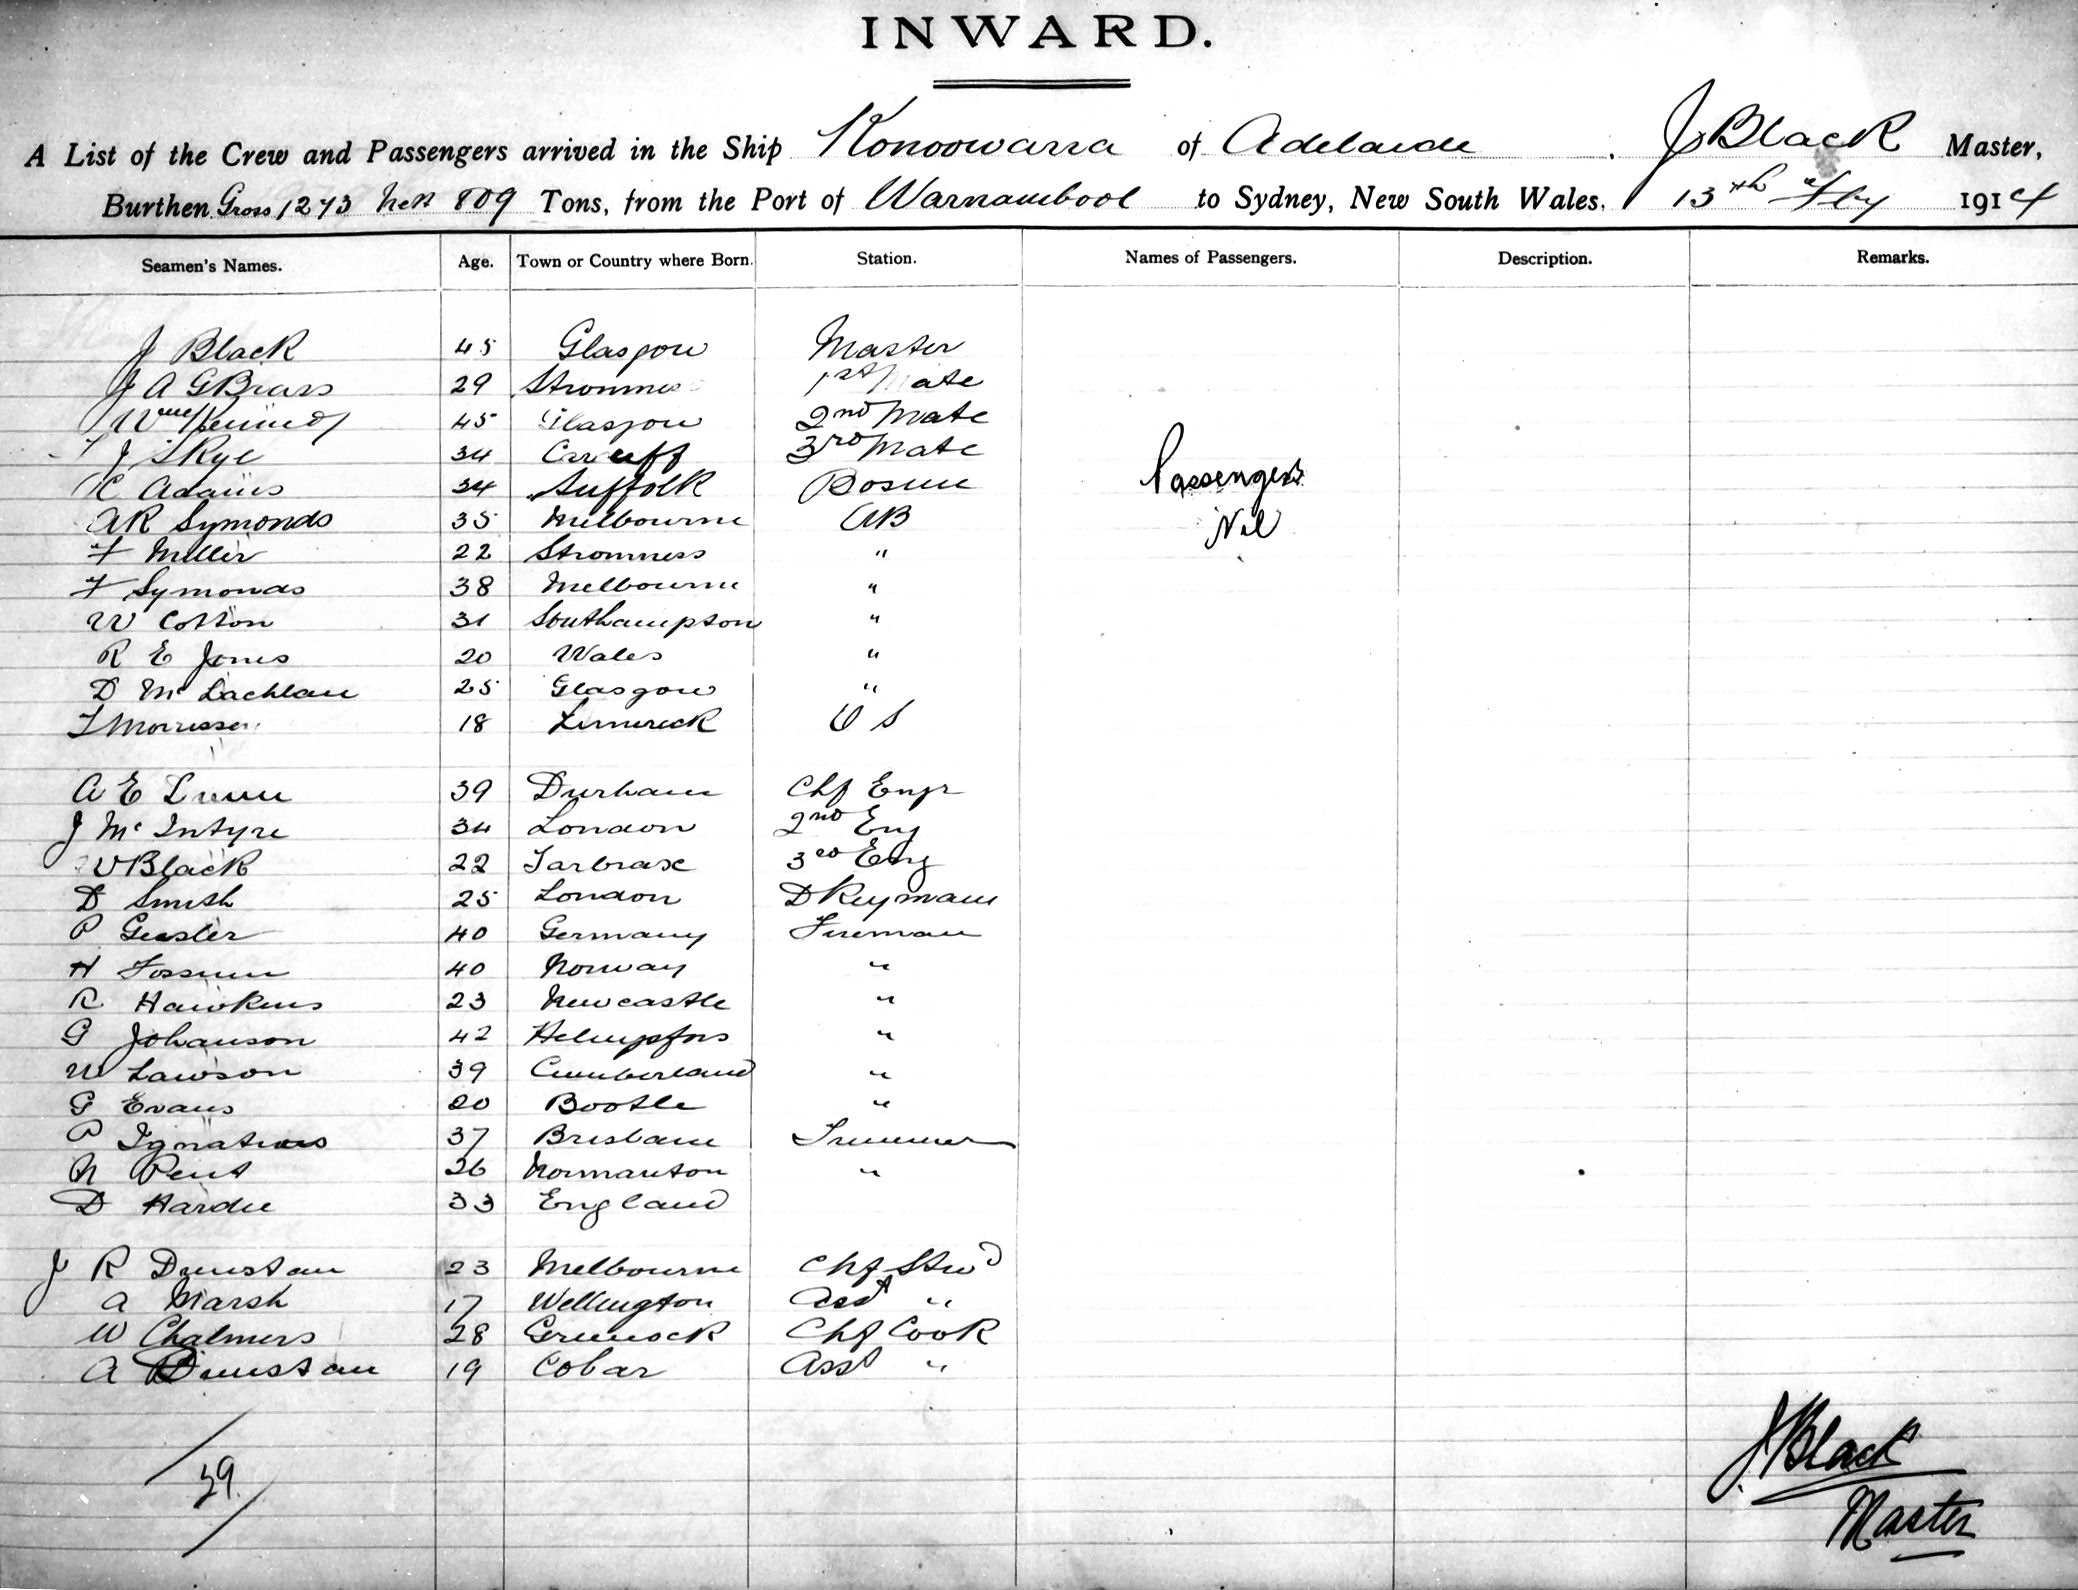 INWARD.
A List of the Crew and Passengers arrived in the Ship Konoowarra of Adelaide. J Black Master,
Burthen Gross 1273 Nett 809 Tons, from the Port of Warnambool to Sydney, New South Wales, 13th Feby 1914
Seamen's Names. Age. Town or Country where Born. Station. Names of Passengers. Description. Remarks.
J Black 45 Glasgow Master
J A G 29 Stromness 1st Mate
Wm Kennedy 45 Glasgow 2nd Mate
J Skye 34 Cardiff 3rd Mate
Adams 34 Suffolk Bosun Passengers
A R Symonds 35 Melbourne AB Nil
F Miller 22 Stromness "
F Symonds 38 Melbourne "
W Cotton 31 Southampton "
R E Jones 20 Wales "
D Mc Lachlan 25 Glasgow "
T Morrissey 18 Limerick O S
A E 39 Durham Chf Engr
J Mc Intyre 34 London 2nd Eng
W Black 22 Tarbrax 3rd Eng
D Smith 25 London D Keyman
P Geisler 40 Germany Fireman
H Fossum 40 Norway "
R Hawkins 23 Newcastle "
G Johanson 42 Helsingfors "
W Lawson 39 Cumberland "
G Evans 20 Bootle "
P Ignatius 37 Brisbane Trimmer
N Pent 26 Normanton "
D Hardie 33 England
J R Dunstan 23 Melbourne Chf Stwd
A Marsh 17 Wellington Asst "
W Chalmers 28 Greenock Chf Cook
A Dunstan 19 Cobar Asst "
29
J Black
Master